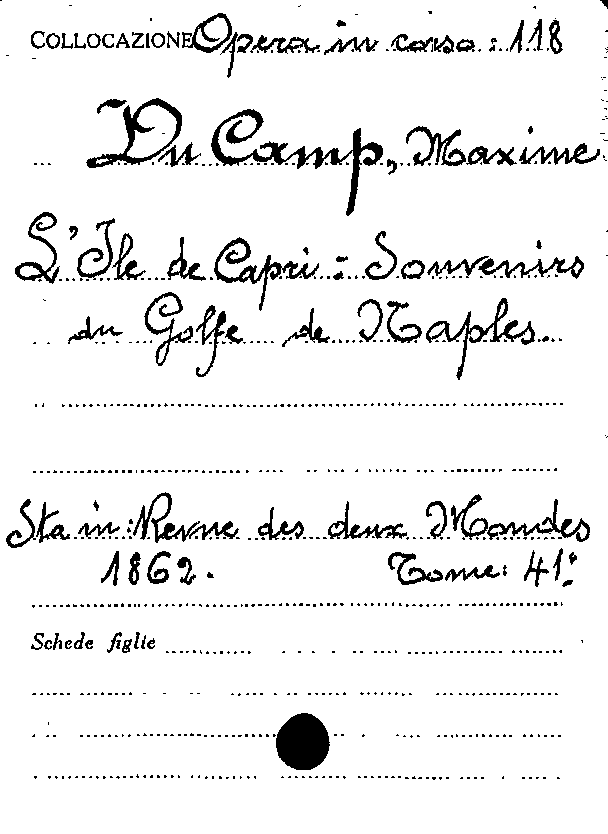 COLLOCAZIONE Opera in corso: 118
Du Camp, Maxime
L'Ile de Capri: Souvenirs
du Golfe de Naples.
Sta in: Revue des deux Mondes
1862. Tome: 41º
Schede figlie